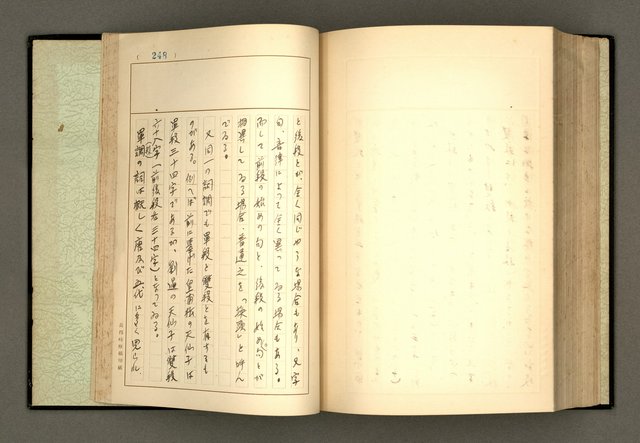 (249)
と後段とが、全く同じやうな場合もあり、又字
句、音律に よつて全く異つてゐる場合もある。
而して前段の始めの句と、後段の始めの句とが
相異してゐる場合、普通之を「換頭」と呼ん
でゐる。
又同一の詞調でも単段と双段とを有するも
のがある。例へば前に挙げた皇甫松の天仙子は
単段三十四字であるが、劉過の天仙子は双段
六十八字(前後段各三十四字)となつてゐる。
単調の詞は概しく唐及び五代に多く見られ、